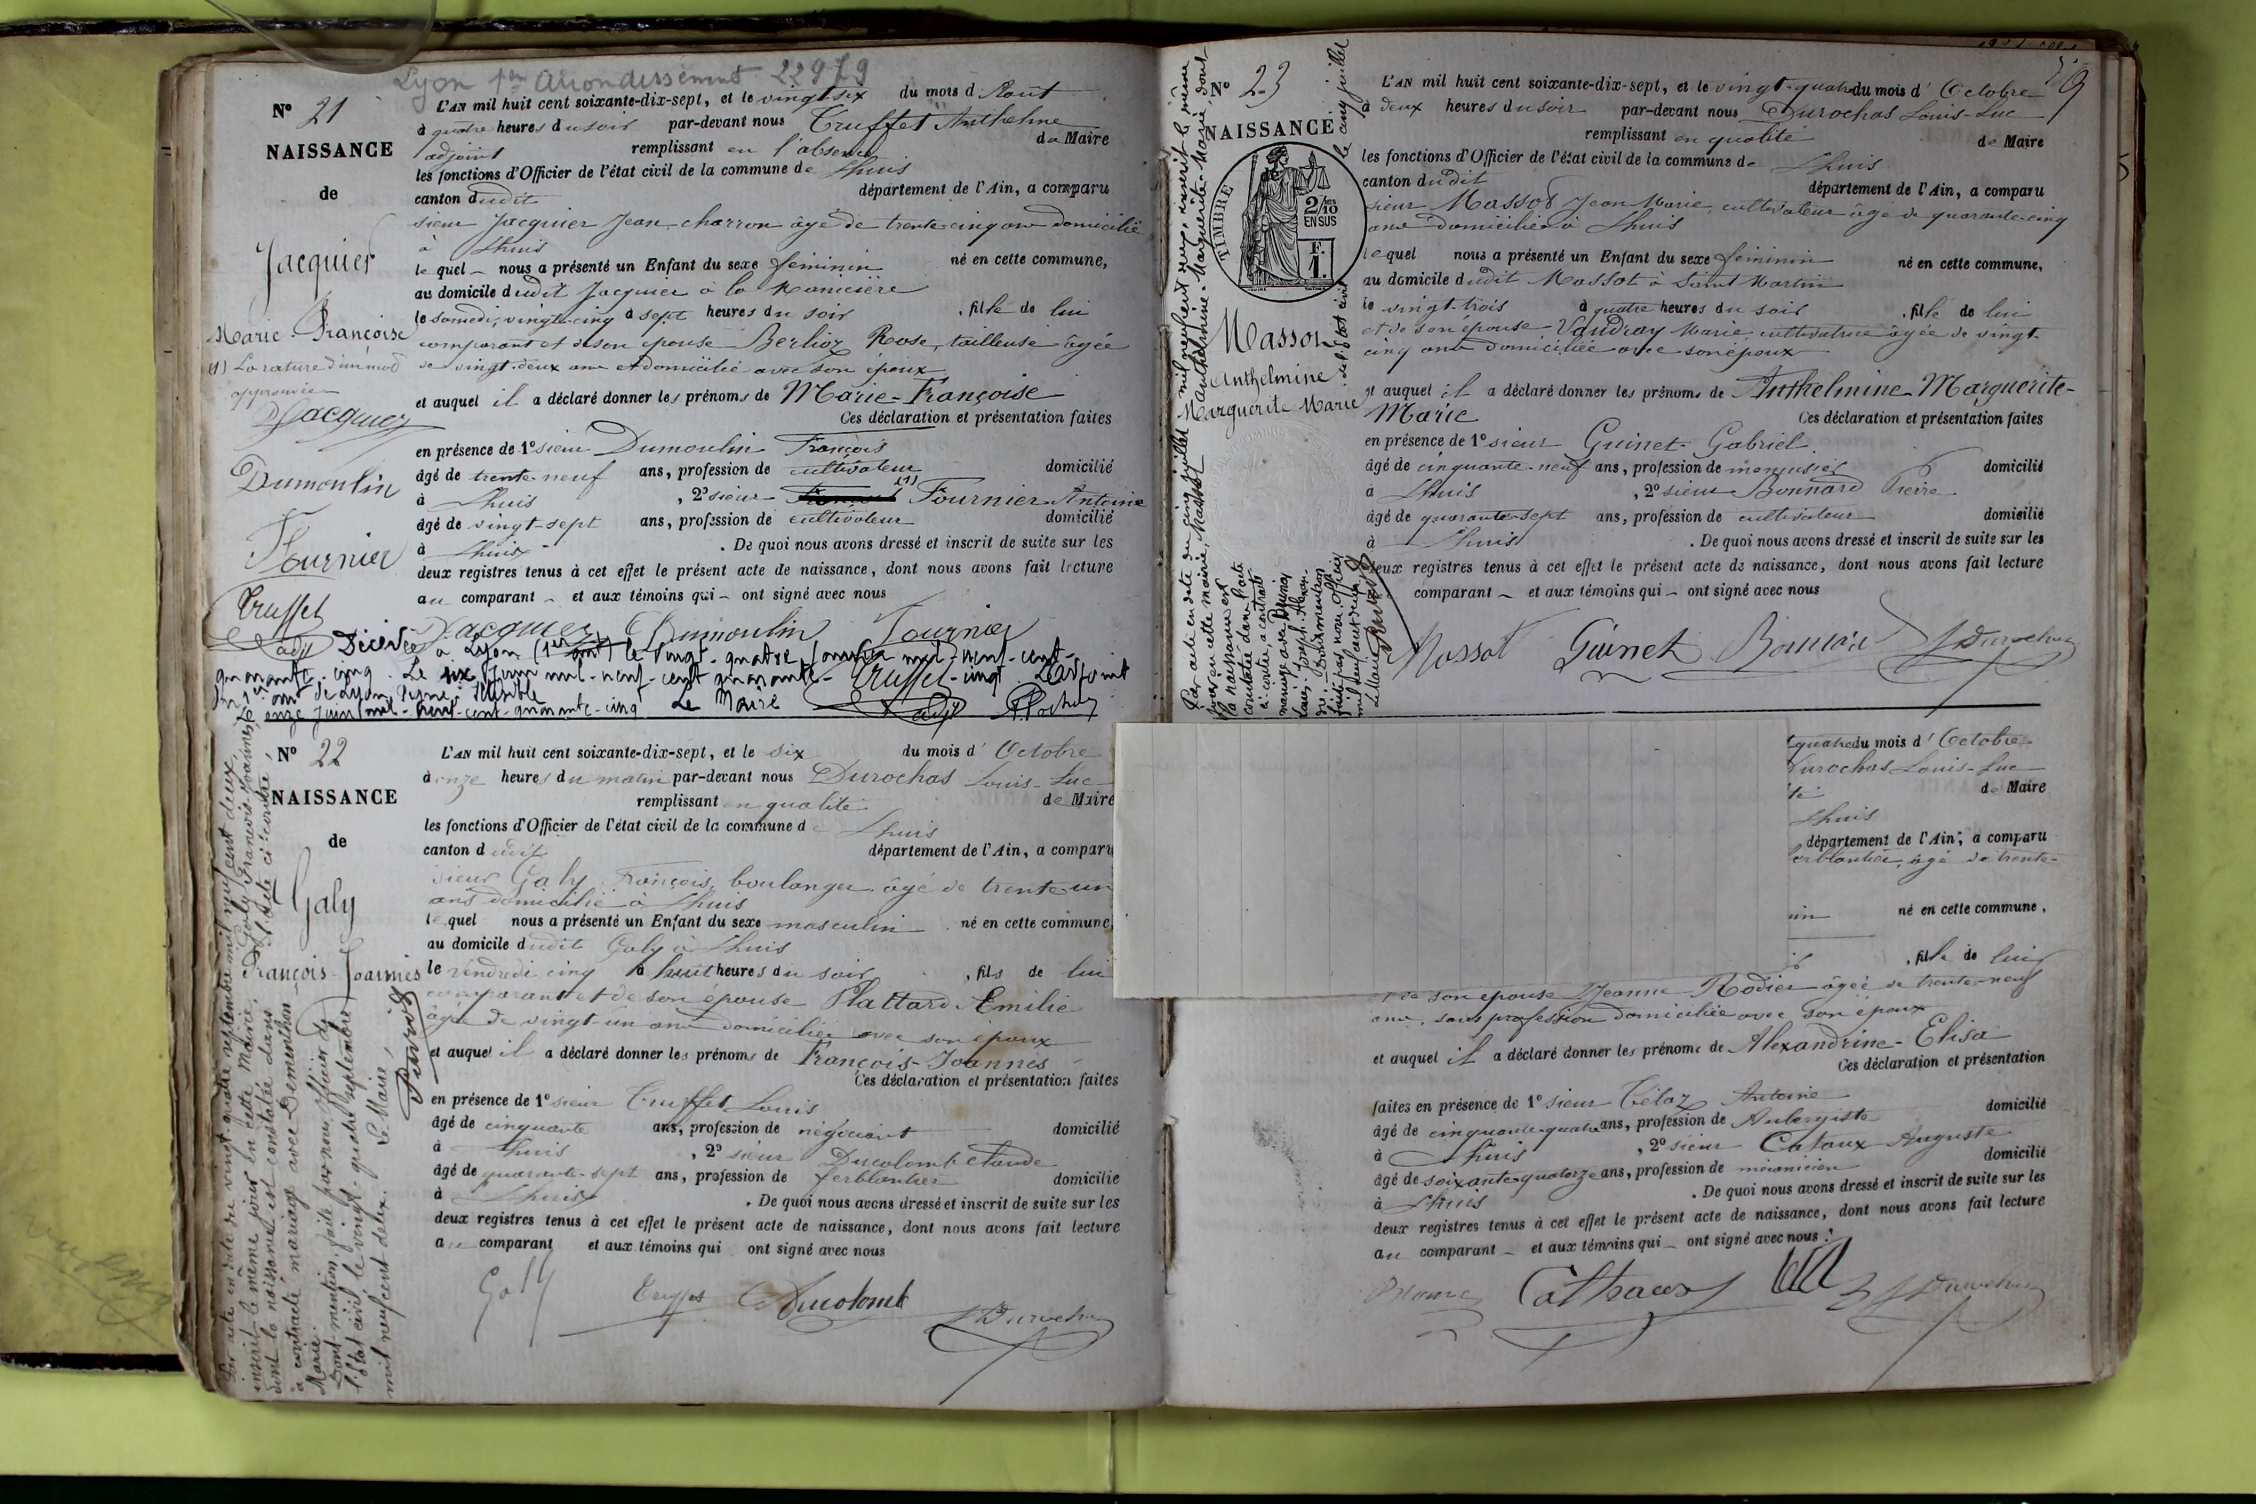 Lyon 1er Arrondissement 22979
N° 21
NAISSANCE
de
Jacquier
Marie-Françoise
(1) La rature d'un mot
approuvée
Jacquier
Dumoulin
Fournier
Truffet
adjt
L'AN mil huit cent soixante-dix-sept, et le vingt-six du mois d'Août
à quatre heures du soir par-devant nous Truffet Anthelme
adjoint remplissant en l'absence du Maire
les fonctions d'Officier de l'état civil de la commune de Lhuis
canton dudit département de l'Ain, a comparu
sieur Jacquier Jean, charron âgé de trente-cinq ans domicilié
à Lhuis
lequel nous a présenté un Enfant du sexe féminin né en cette commune,
au domicile dudit Jacquier à la
le samedi, vingt-cinq à sept heures du soir, fille de lui
comparant et de son épouse Berlioz Rose, tailleuse âgée
de vingt-deux ans et domiciliée avec son époux
et auquel il a déclaré donner les prénoms de Marie-Françoise
Ces déclaration et présentation faites
en présence de 1° sieur Dumoulin François
âgé de trente-neuf ans, profession de cultivateur domicilié
à Lhuis, 2° sieur (1) Fournier Antoine
âgé de vingt-sept ans, profession de cultivateur domicilié
à Lhuis. De quoi nous avons dressé et inscrit de suite sur les
deux registres tenus à cet effet le présent acte de naissance, dont nous avons fait lecture
au comparant et aux témoins qui ont signé avec nous
Jacquier Dumoulin Fournier
Décédée à Lyon (1er arrt) le vingt-quatre janvier mil-neuf-cent-
quarante-cinq. Le six Juin mil-neuf-cent quarante-cinq. L'adjoint
au 1er arrt de Lyon, signé: Illisible
Truffet
Le onze Juin mil-neuf-cent-quarante-cinq Le Maire
adjt
N° 22
NAISSANCE
de
Galy
François-Joannès
Par acte en date du vingt-quatre septembre mil neuf cent deux,
inscrit le même jour en cette Mairie, Galy François-Joannès,
dont la naissance est constatée dans l'acte ci-contre,
a contracté mariage avec Dementhon
Marie.
Dont mention faite par nous, officier de
l'état civil le vingt-quatre septembre
mil neuf cent deux. Le Maire
L'AN mil huit cent soixante-dix-sept, et le six du mois d'Octobre
à onze heures du matin par-devant nous Durochas Louis-Luc
remplissant en qualité de Maire
les fonctions d'Officier de l'état civil de la commune de Lhuis
canton dudit département de l'Ain, a comparu
sieur Galy François, boulanger âgé de trente-un
ans domicilié à Lhuis
lequel nous a présenté un Enfant du sexe masculin né en cette commune,
au domicile dudit Galy à Lhuis
le vendredi cinq à huit heures du soir, fils de lui
comparant et de son épouse Plattard Emilie
âgée de vingt-un ans domiciliée avec son époux
et auquel il a déclaré donner les prénoms de François-Joannès
Ces déclaration et présentation faites
en présence de 1° sieur Truffet Louis
âgé de cinquante ans, profession de négociant domicilié
à Lhuis, 2° sieur Ducolomb Claude
âgé de quarante-sept ans, profession de ferblantier domicilié
à Lhuis. De quoi nous avons dressé et inscrit de suite sur les
deux registres tenus à cet effet le présent acte de naissance, dont nous avons fait lecture
au comparant et aux témoins qui ont signé avec nous
Galy Truffet Ducolomb Durochas
N° 23
NAISSANCE
TIMBRE
2/10 ES
EN SUS
F.
1.
Massot
Anthelmine
Marguerite Marie
Par acte en date du cinq juillet mil neuf cent deux, inscrit le même
jour en cette mairie, Massot Anthelmine-Marguerite-Marie, dont
la naissance est
constatée dans l'acte
ci-contre, a contracté
mariage avec Brunat
Louis-Joseph-Alexan-
dre. Dont mention
faite par nous, officier
de l'état civil le cinq juillet
mil neuf cent deux.
Le Maire
L'AN mil huit cent soixante-dix-sept, et le vingt-quatre du mois d'Octobre
à deux heures du soir par-devant nous Durochas Louis-Luc
remplissant en qualité de Maire
les fonctions d'Officier de l'état civil de la commune de Lhuis
canton dudit département de l'Ain, a comparu
sieur Massot Jean Marie, cultivateur âgé de quarante-cinq
ans domicilié à Lhuis
lequel nous a présenté un Enfant du sexe féminin né en cette commune,
au domicile dudit Massot à Saint Martin
le vingt-trois à quatre heures du soir, fille de lui
et de son épouse Vaudray Marie, cultivatrice âgée de vingt-
cinq ans domiciliée avec son époux
et auquel il a déclaré donner les prénoms de Anthelmine-Marguerite-
Marie Ces déclaration et présentation faites
en présence de 1° sieur Guinet Gabriel
âgé de cinquante-neuf ans, profession de menuisier domicilié
à Lhuis, 2° sieur Bonnard Pierre
âgé de quarante-sept ans, profession de cultivateur domicilié
à Lhuis. De quoi nous avons dressé et inscrit de suite sur les
deux registres tenus à cet effet le présent acte de naissance, dont nous avons fait lecture
comparant et aux témoins qui ont signé avec nous
Massot Guinet Bonnard Durochas
quatre du mois d'Octobre
Durochas Louis-Luc
té de Maire
Lhuis
département de l'Ain, a comparu
ferblantier, âgé de trente-
né en cette commune,
, fille de lui
et de son épouse Jeanne Rodier âgée de trente-neuf
ans, sans profession domiciliée avec son époux
et auquel il a déclaré donner les prénoms de Alexandrine-Elisa
Ces déclaration et présentation
faites en présence de 1° sieur Antoine
âgé de cinquante-quatre ans, profession de Aubergiste domicilié
à Lhuis, 2° sieur Cataux Auguste
âgé de soixante-quatorze ans, profession de mécanicien domicilié
à Lhuis. De quoi nous avons dressé et inscrit de suite sur les
deux registres tenus à cet effet le présent acte de naissance, dont nous avons fait lecture
au comparant et aux témoins qui ont signé avec nous.
Durochas